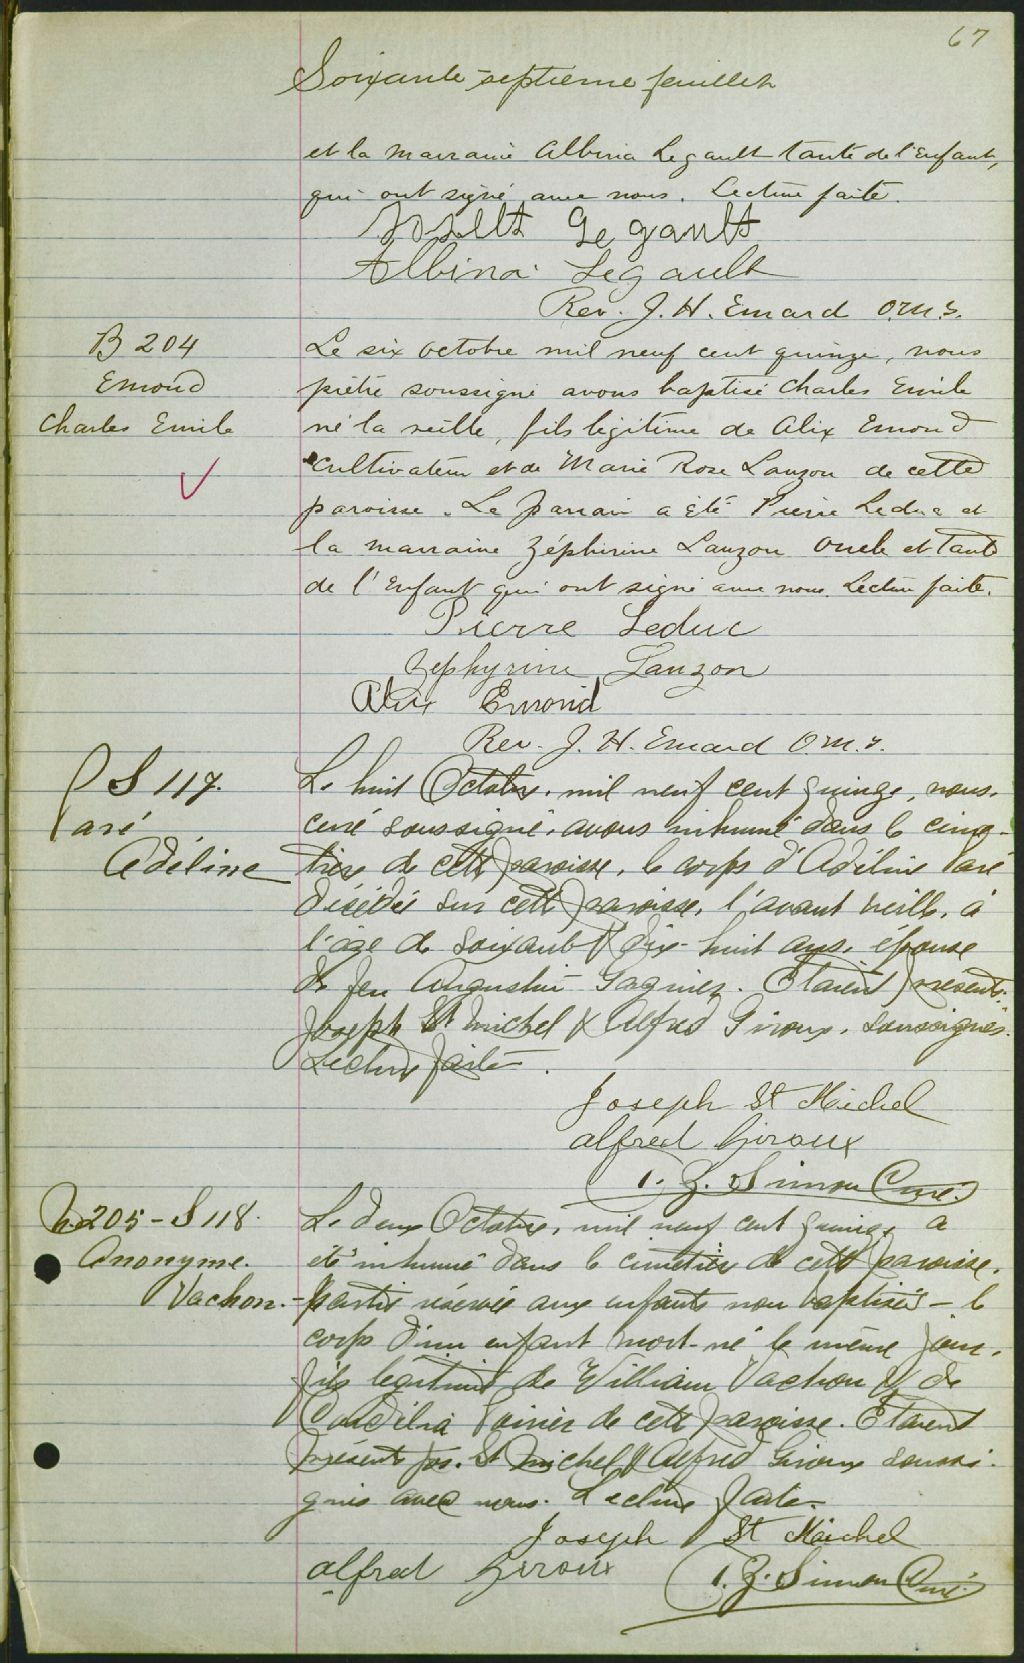 67
Soixante-septième feuillet
et la marraine Albina Legault tante de l'Enfant,
qui ont signé avec nous. Lecture faite.
Legault
Albina Legault
Rev. J. H. Emard O.M.I.
B 204
Emond
Charles Emile
Le six octobre mil neuf cent quinze, nous
prêtre soussigné avons baptisé Charles Emile
né la veille, fils légitime de Alix Emond
cultivateur et de Marie Rose Lauzon de cette
paroisse. Le parrain a été Pierre Leduc et
la marraine Zéphirine Lauzon oncle et tante
de l'Enfant qui ont signé avec nous. Lecture faite.
Pierre Leduc
Zephyrine Lauzon
Alix Emond
Rev. J. H. Emard O.M.I.
S 117.
Paré
Adéline
Le huit Octobre, mil neuf cent quinze, nous,
curé soussigné, avons inhumé dans le cime-
tière de cette paroisse, le corps d'Adéline Paré
décédée sur cette paroisse, l'avant veille, à
l'âge de soixante & dix-huit ans, épouse
de feu Augustin Gagnier. Etaient présents:
Joseph St Michel & Alfred Giroux, soussignés.
Lecture faite.
Joseph St Michel
alfred Giroux
Z. Simon Curé.
205 - S 118.
Anonyme.
Vachon.
Le deux Octobre, mil neuf cent quinze, a
été inhumé dans le cimetière de cette paroisse,
-partie réservée aux enfants non baptisés - le
corps d'un enfant mort-né le même jour,
fils légitime de William Vachon & de
Poirier de cette paroisse. Etaient
présents Jos. St Michel & Alfred Giroux soussi-
gnés avec nous. Lecture faite.
Joseph St Michel
alfred Giroux
Z. Simon Curé.